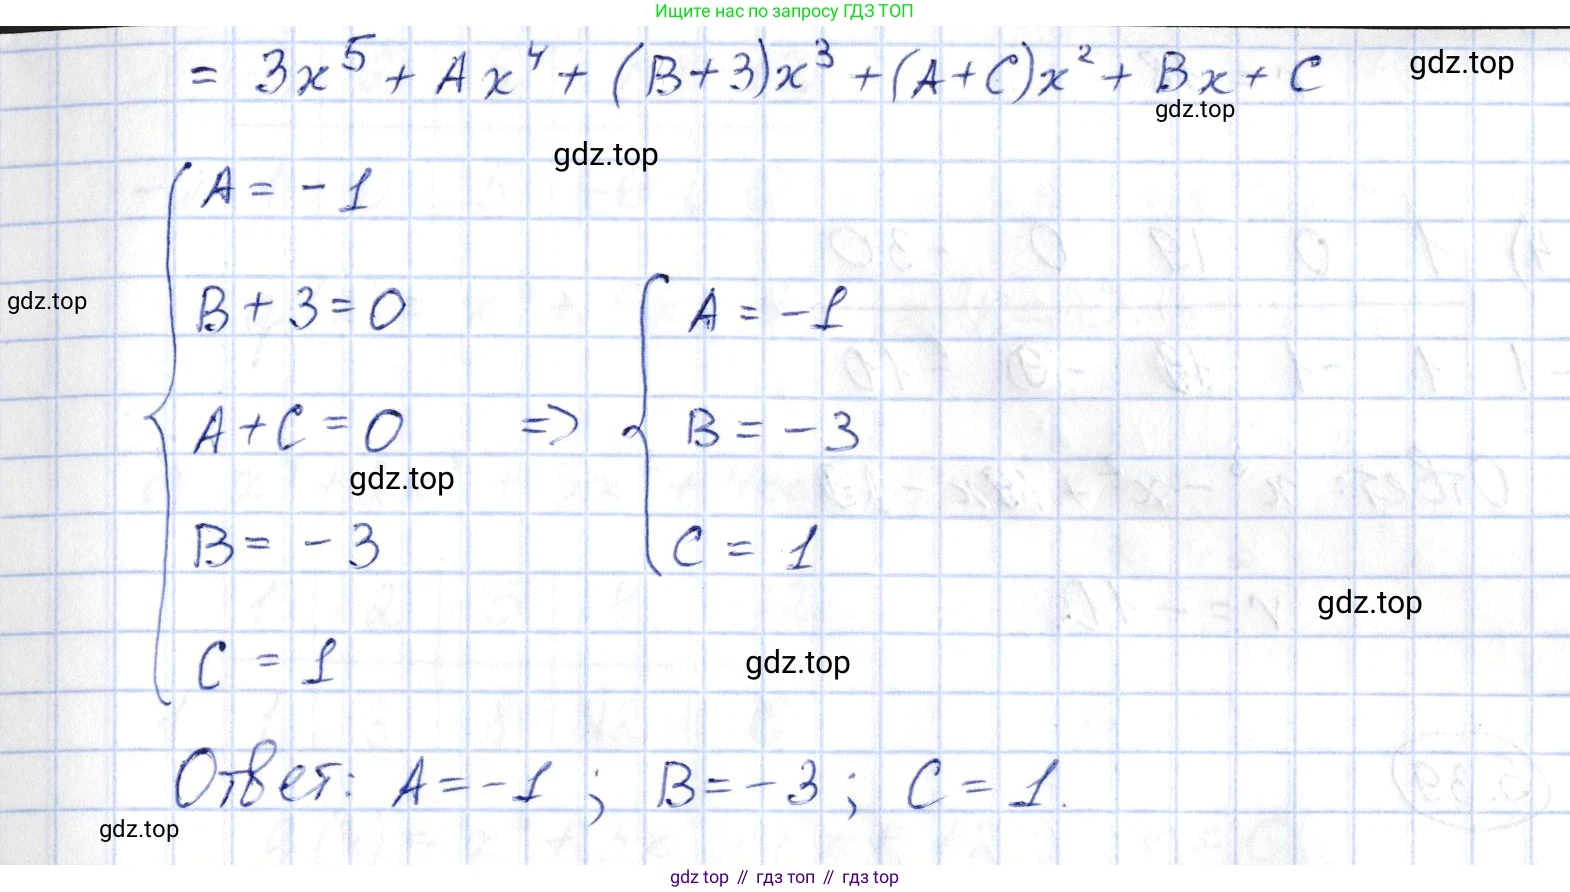 Ищите нас по запросу ГДЗ ТОП
= 3x⁵ + Ax⁴ + (B+3)x³ + (A+C)x² + Bx + C
gdz.top
gdz.top
gdz.top
A = -1
gdz.top
B + 3 = 0
A = -1
A + C = 0
=>
B = -3
gdz.top
B = -3
C = 1
gdz.top
C = 1
gdz.top
Ответ: A = -1 ; B = -3 ; C = 1.
gdz.top
gdz top // гдз топ // гдз top